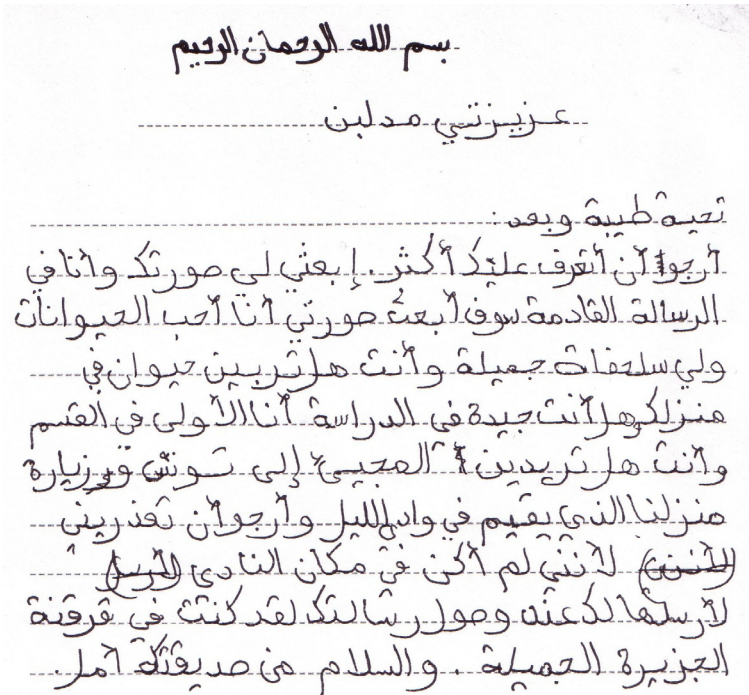 بسم الله الرحمان الرحيم
عزيزتي مدلين
تحية طيبة وبعد:
أرجوا أن أتعرف عليك أكثر. إبعثي لي صورتك وأنا في
الرسالة القادمة سوف أبعث صورتي أنا أحب الحيوانات
ولي سلحفاة جميلة وأنت هل تربين حيوان في
منزلك هل أنت جيدة في الدراسة أنا الأولى في القسم
وأنت هل تريدين المجيئ إلى تونس وزيارة
منزلنا الذي يقيم في واد الليل وأرجو أن تعذريني
لأنني لم أكن في مكان النادي
لأرسلها لك عند وصول رسالتك لقد كنت في قرقنة
الجزيرة الجميلة. والسلام من صديقتك أمل.